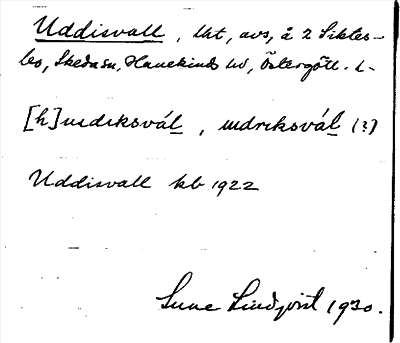 Uddisvall, lht, avs, å 2 Siktes-
bo, Skeda sn, Hanekinds hd, Östergötl. l.
[h]udiksvál, udriksvál (?)
Uddisvall kb 1922
Sune Lindqvist 1930.